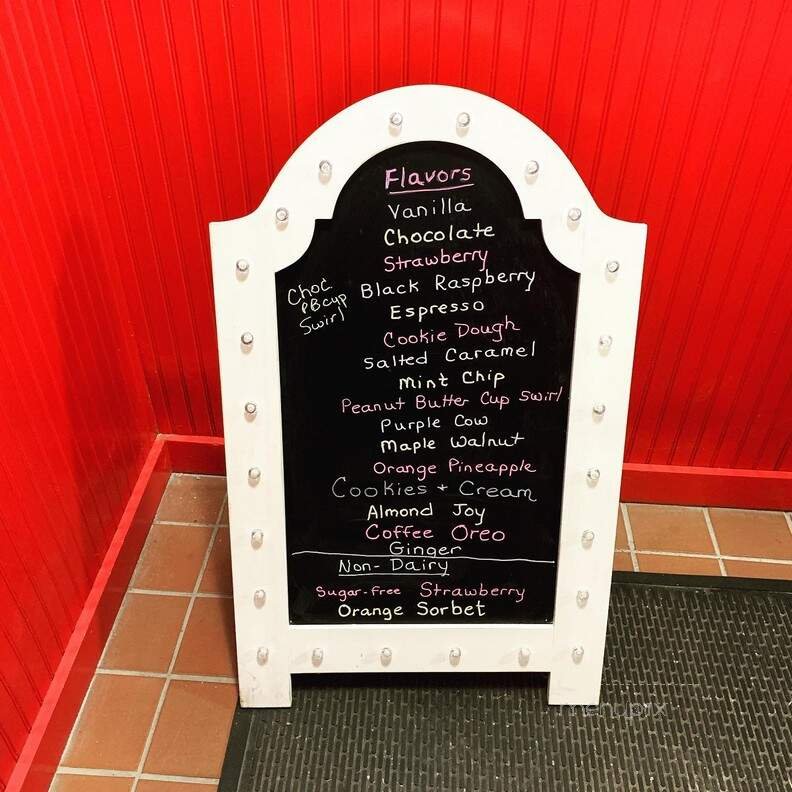 Flavors
Vanilla
Chocolate
Strawberry
Black Raspberry
Choc
PB cup
Swirl
Espresso
Cookie Dough
Salted Caramel
Mint Chip
Peanut Butter Cup Swirl
Purple Cow
Maple Walnut
Orange Pineapple
Cookies + Cream
Almond Joy
Coffee Oreo
Ginger
Non-Dairy
Sugar-free Strawberry
Orange Sorbet
menupix